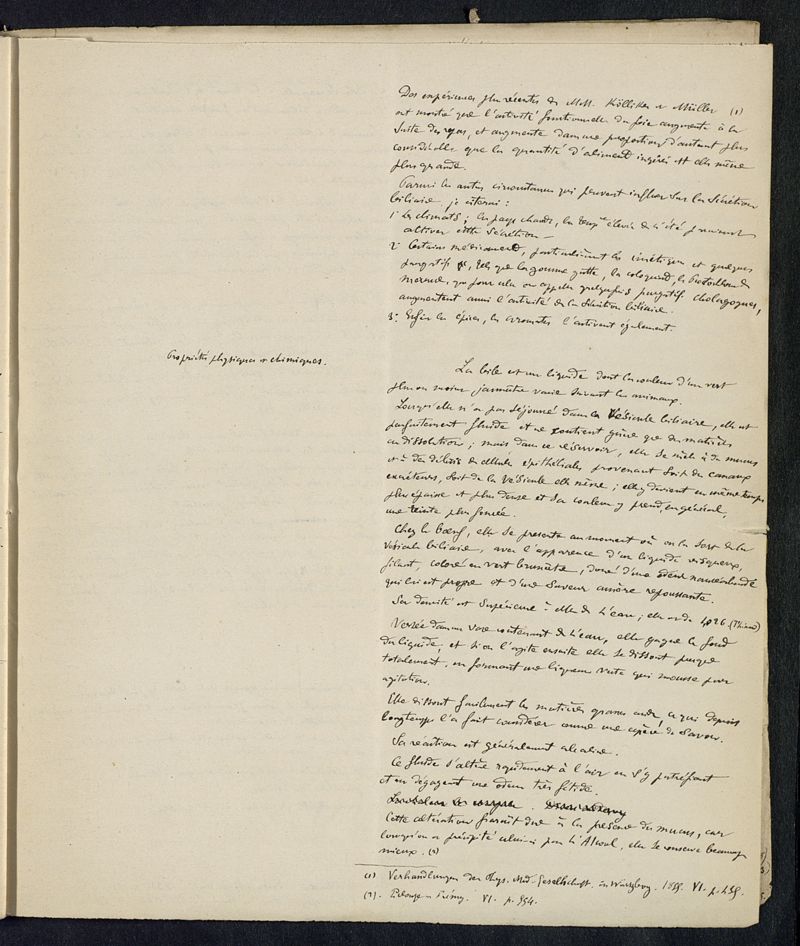 Des expériences plus récentes de MM. Kölliker et Müller (1)
ont montré que l'activité fonctionnelle du foie augmente à la
suite des repas, et augmente dans une proportion d'autant plus
considérable que la quantité d'aliment ingérés est elle même
plus grande.
Parmi les autres circonstances qui peuvent influer sur la sécrétion
biliaire, je citerai :
1° Les climats ; les pays chauds, la temp.re élevée de l'été paraissent
activer cette sécrétion —
2° Certains médicaments, particulièrement les émétiques et quelques
purgatifs, tels que la gomme gutte, la coloquinte, le Protochlorure de
mercure, qui pour cela on appelle quelquefois purgatifs cholagogues,
augmentent aussi l'activité de la sécrétion biliaire.
3° Enfin les épices, les aromates l'activent également
Propriétés physiques et chimiques.
La bile est un liquide dont la couleur d'un vert
plus ou moins jaunâtre varie suivant les animaux.
Lorsqu'elle n'a pas séjourné dans la Vésicule biliaire, elle est
parfaitement fluide et ne contient guère que des matières
en dissolution ; mais dans ce réservoir, elle se mêle à du mucus
et à des débris de cellules épithéliales provenant soit des canaux
excréteurs, soit de la Vésicule elle même ; elle y devient en même temps
plus épaisse et plus dense et sa couleur y prend, en général,
une teinte plus foncée.
Chez le bœuf, elle se présente au moment où on la sort de la
vésicule biliaire, avec l'apparence d'un liquide visqueux,
filant, coloré en vert brunâtre, doué d'une odeur nauséabonde
qui lui est propre et d'une saveur amère repoussante.
Sa densité est supérieure à celle de l'eau ; elle est de 1,026 (Thénard)
Versée dans un vase contenant de l'eau, elle gagne le fond
du liquide, et si on l'agite ensuite elle se dissout presque
totalement, en formant une liqueur verte qui mousse par
agitation.
Elle dissout facilement les matières grasses, ce qui depuis
longtemps l'a fait considérer comme une espèce de savon.
Sa réaction est généralement alcaline.
Ce fluide s'altère rapidement à l'air en s'y putréfiant
et en dégageant une odeur très fétide.
Cette altération paraît due à la présence du mucus, car
lorsqu'on a précipité celui-ci par l'Alcool, elle se conserve beaucoup
mieux. (2)
(1) Verhandlungen der Phys. Med. Gesellschaft. in Wurzburg. 1855. VI. p.
(2). Pelouze et Frémy. VI. p. 954.